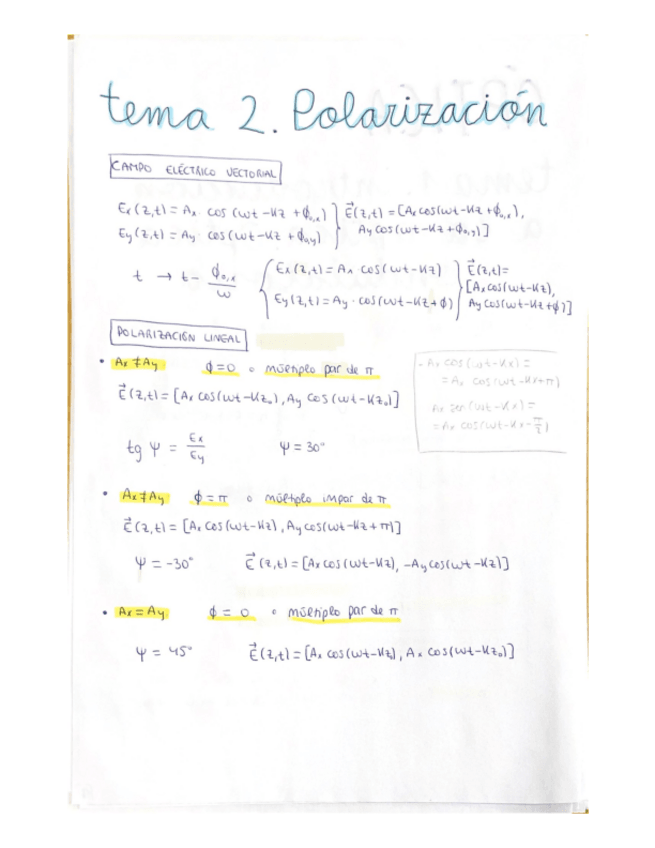 tema 2. Polarización
CAMPO ELÉCTRICO VECTORIAL
Ex(z,t) = Ax · cos (ωt - kz + ϕ₀,ₓ) } E⃗(z,t) = [Ax cos(ωt - kz + ϕ₀,ₓ),
Ey(z,t) = Ay · cos (ωt - kz + ϕ₀,y) } Ay cos(ωt - kz + ϕ₀,y)]
t → t - ϕ₀,ₓ/ω { Ex(z,t) = Ax · cos(ωt - kz) } E⃗(z,t) =
[Ax cos(ωt - kz),
Ey(z,t) = Ay · cos(ωt - kz + ϕ) } Ay cos(ωt - kz + ϕ)]
POLARIZACIÓN LINEAL
• Ax ≠ Ay ϕ = 0 o múltiplo par de π
E⃗(z,t) = [Ax cos(ωt - kz₀), Ay cos(ωt - kz₀)]
- Ax cos(ωt - kx) =
= Ax cos(ωt - kx + π)
Ax sen(ωt - kx) =
= Ax cos(ωt - kx - π/2)
tg ψ = Ex/Ey ψ = 30°
• Ax ≠ Ay ϕ = π o múltiplo impar de π
E⃗(z,t) = [Ax cos(ωt - kz), Ay cos(ωt - kz + π)]
ψ = -30° E⃗(z,t) = [Ax cos(ωt - kz), -Ay cos(ωt - kz)]
• Ax = Ay ϕ = 0 o múltiplo par de π
ψ = 45° E⃗(z,t) = [Ax cos(ωt - kz), Ax cos(ωt - kz₀)]